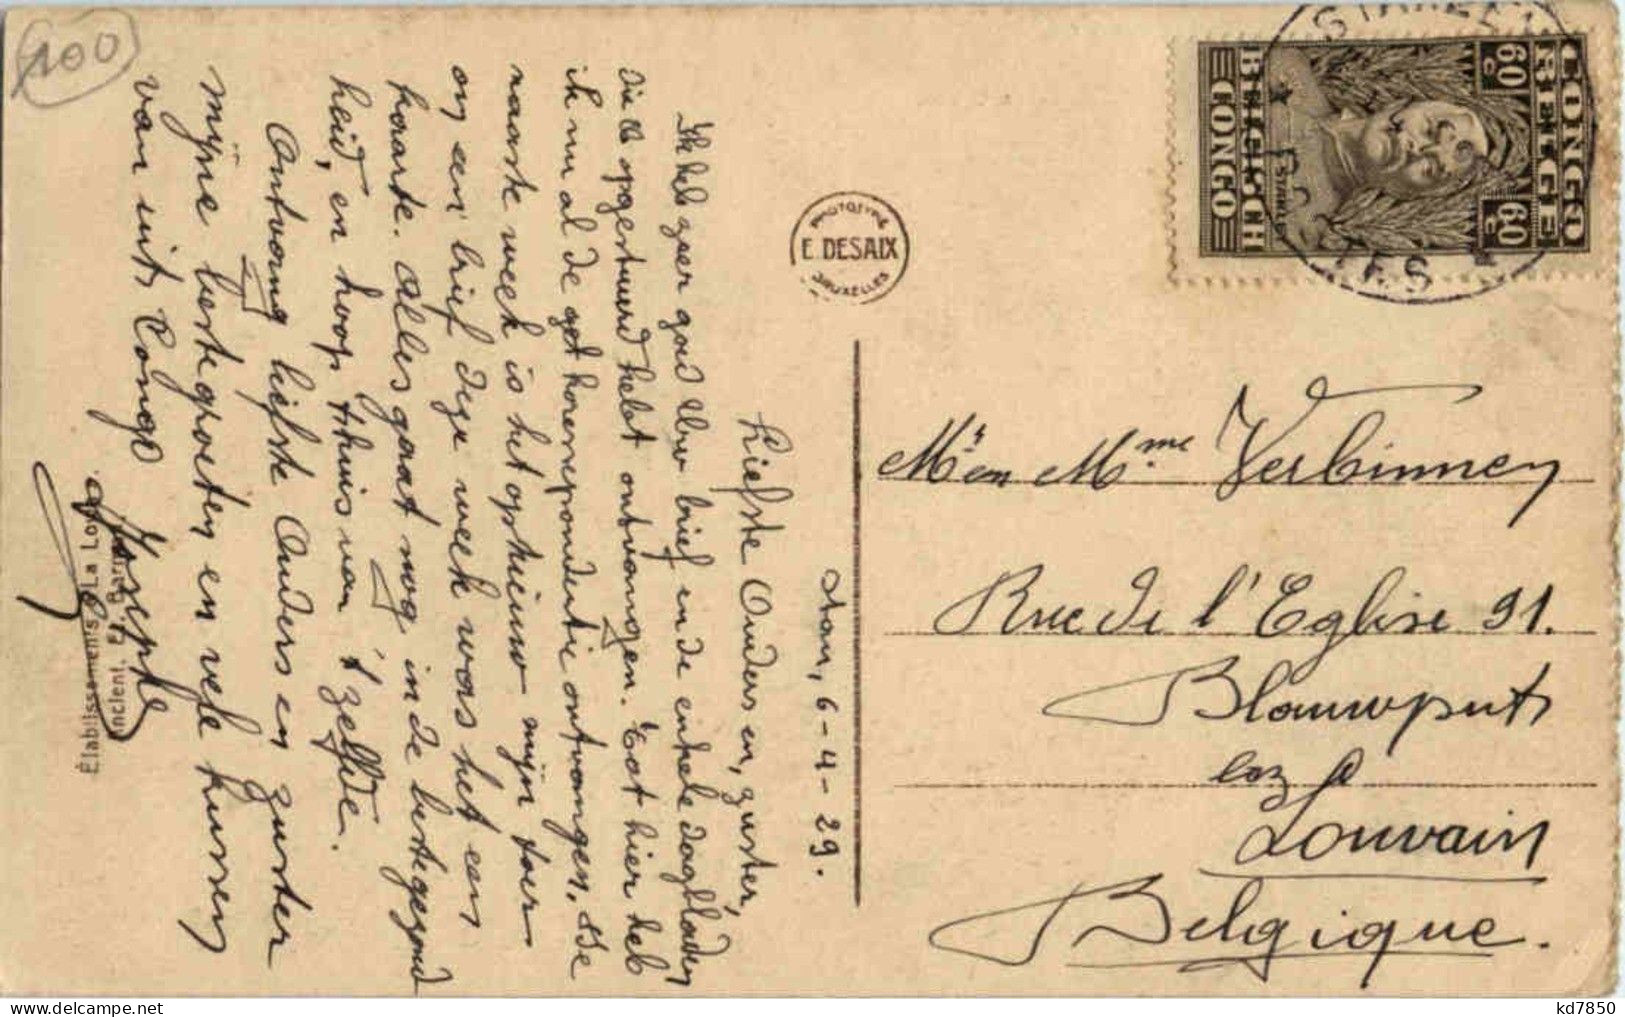 100
Stan, 6-4-29.
Liefste Ouders en, zuster,
Ik heb zeer goed Uw brief en de enkele dagbladen
die U opgestuurd hebt ontvangen. Tot hier heb
ik nu al de korrespondentie ontvangen. De
naaste week is het opnieuw mijn toer
en een brief deze week was het een
kaarte. Alles gaat nog in de beste gezond
heid, en hoop thuis van 't zelfde.
Ontvang liefste Ouders en zuster
mijne beste groeten en vele kussen
van uit Congo
Joseph
Établissements La Lo
Ancient. E. Pari
PHOTOTYPIE
E. DESAIX
BRUXELLES
CONGO
BELGE
60 c
60 c
STANLEY
BELGISCH
CONGO
STANLEY
Mr en Mme Verbinnen
Rue de l'Eglise 91.
Blauwput
lez
Louvain
Belgique.
kd7850